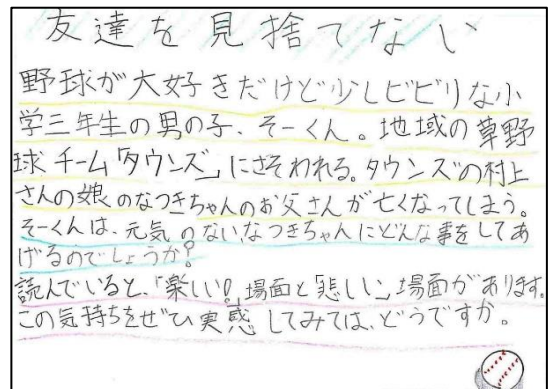 友達を見捨てない
野球が大好きだけど少しビビりな小
学三年生の男の子、そーくん。地域の草野
球チーム「タウンズ」にさそわれる。タウンズの村上
さんの娘のなつきちゃんのお父さんが亡くなってしまう。
そーくんは、元気のないなつきちゃんにどんな事をしてあ
げるのでしょうか?
読んでいると、「楽しい!」場面と「悲しい」場面があります。
この気持ちをぜひ実感してみては、どうですか。